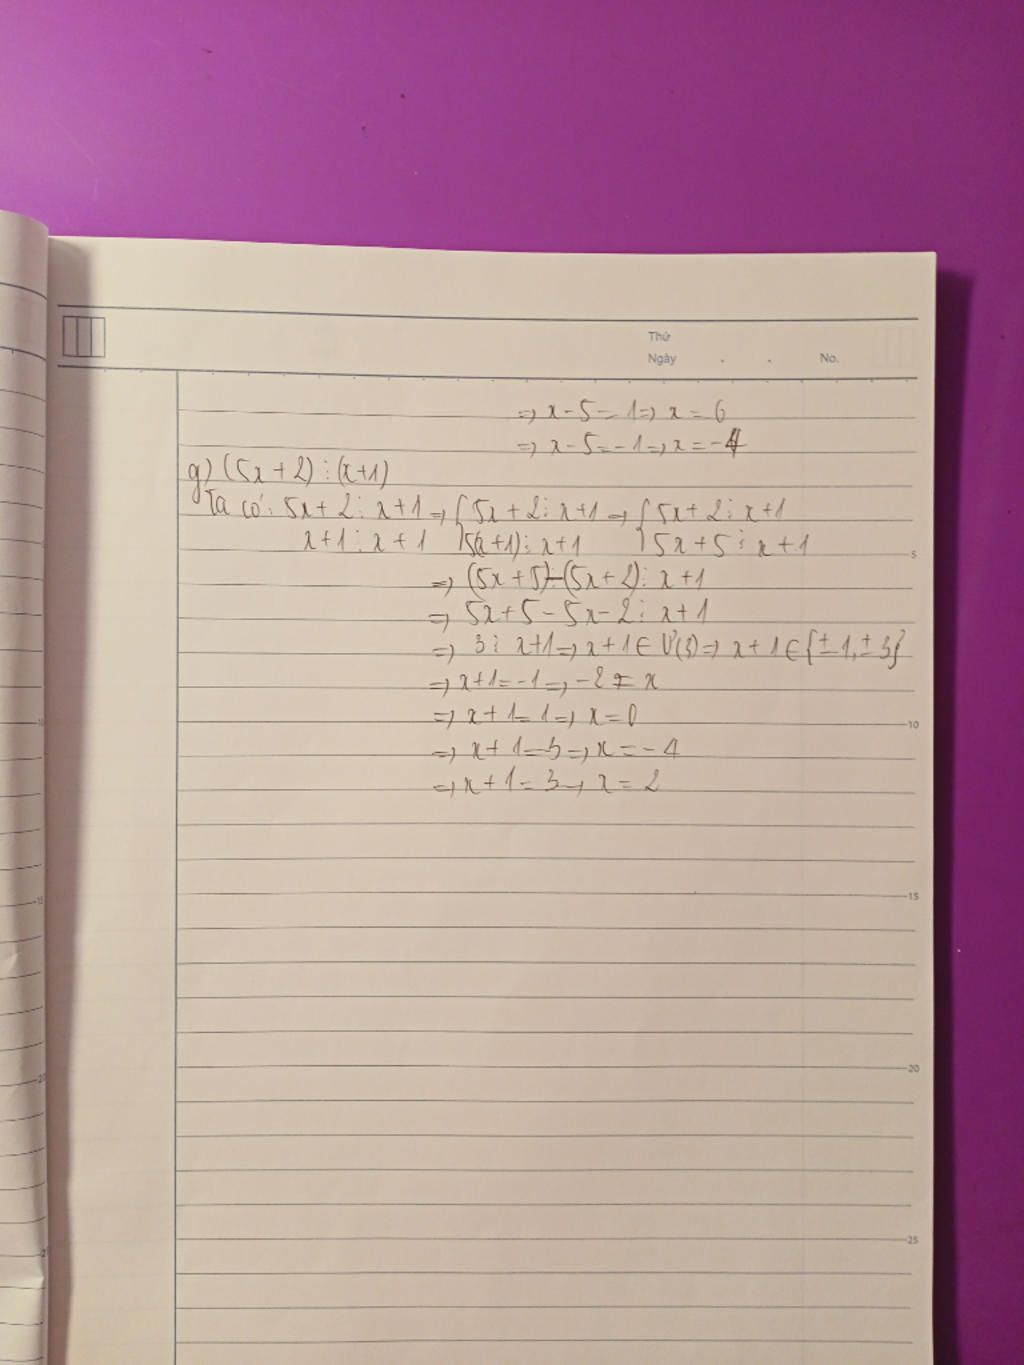 Thứ
Ngày . . No.
=> x - 5 = 1 => x = 6
=> x - 5 = -1 => x = -4
g) (5x + 2) ⋮ (x + 1)
Ta có: 5x + 2 ⋮ x + 1 => { 5x + 2 ⋮ x + 1 => { 5x + 2 ⋮ x + 1
x + 1 ⋮ x + 1 5(x + 1) ⋮ x + 1 5x + 5 ⋮ x + 1
=> (5x + 5) - (5x + 2) ⋮ x + 1
=> 5x + 5 - 5x - 2 ⋮ x + 1
=> 3 ⋮ x + 1 => x + 1 ∈ Ư(3) => x + 1 ∈ {± 1, ± 3}
=> x + 1 = -1 => -2 = x
=> x + 1 = 1 => x = 0
=> x + 1 = -3 => x = -4
=> x + 1 = 3 => x = 2
5
10
15
20
25